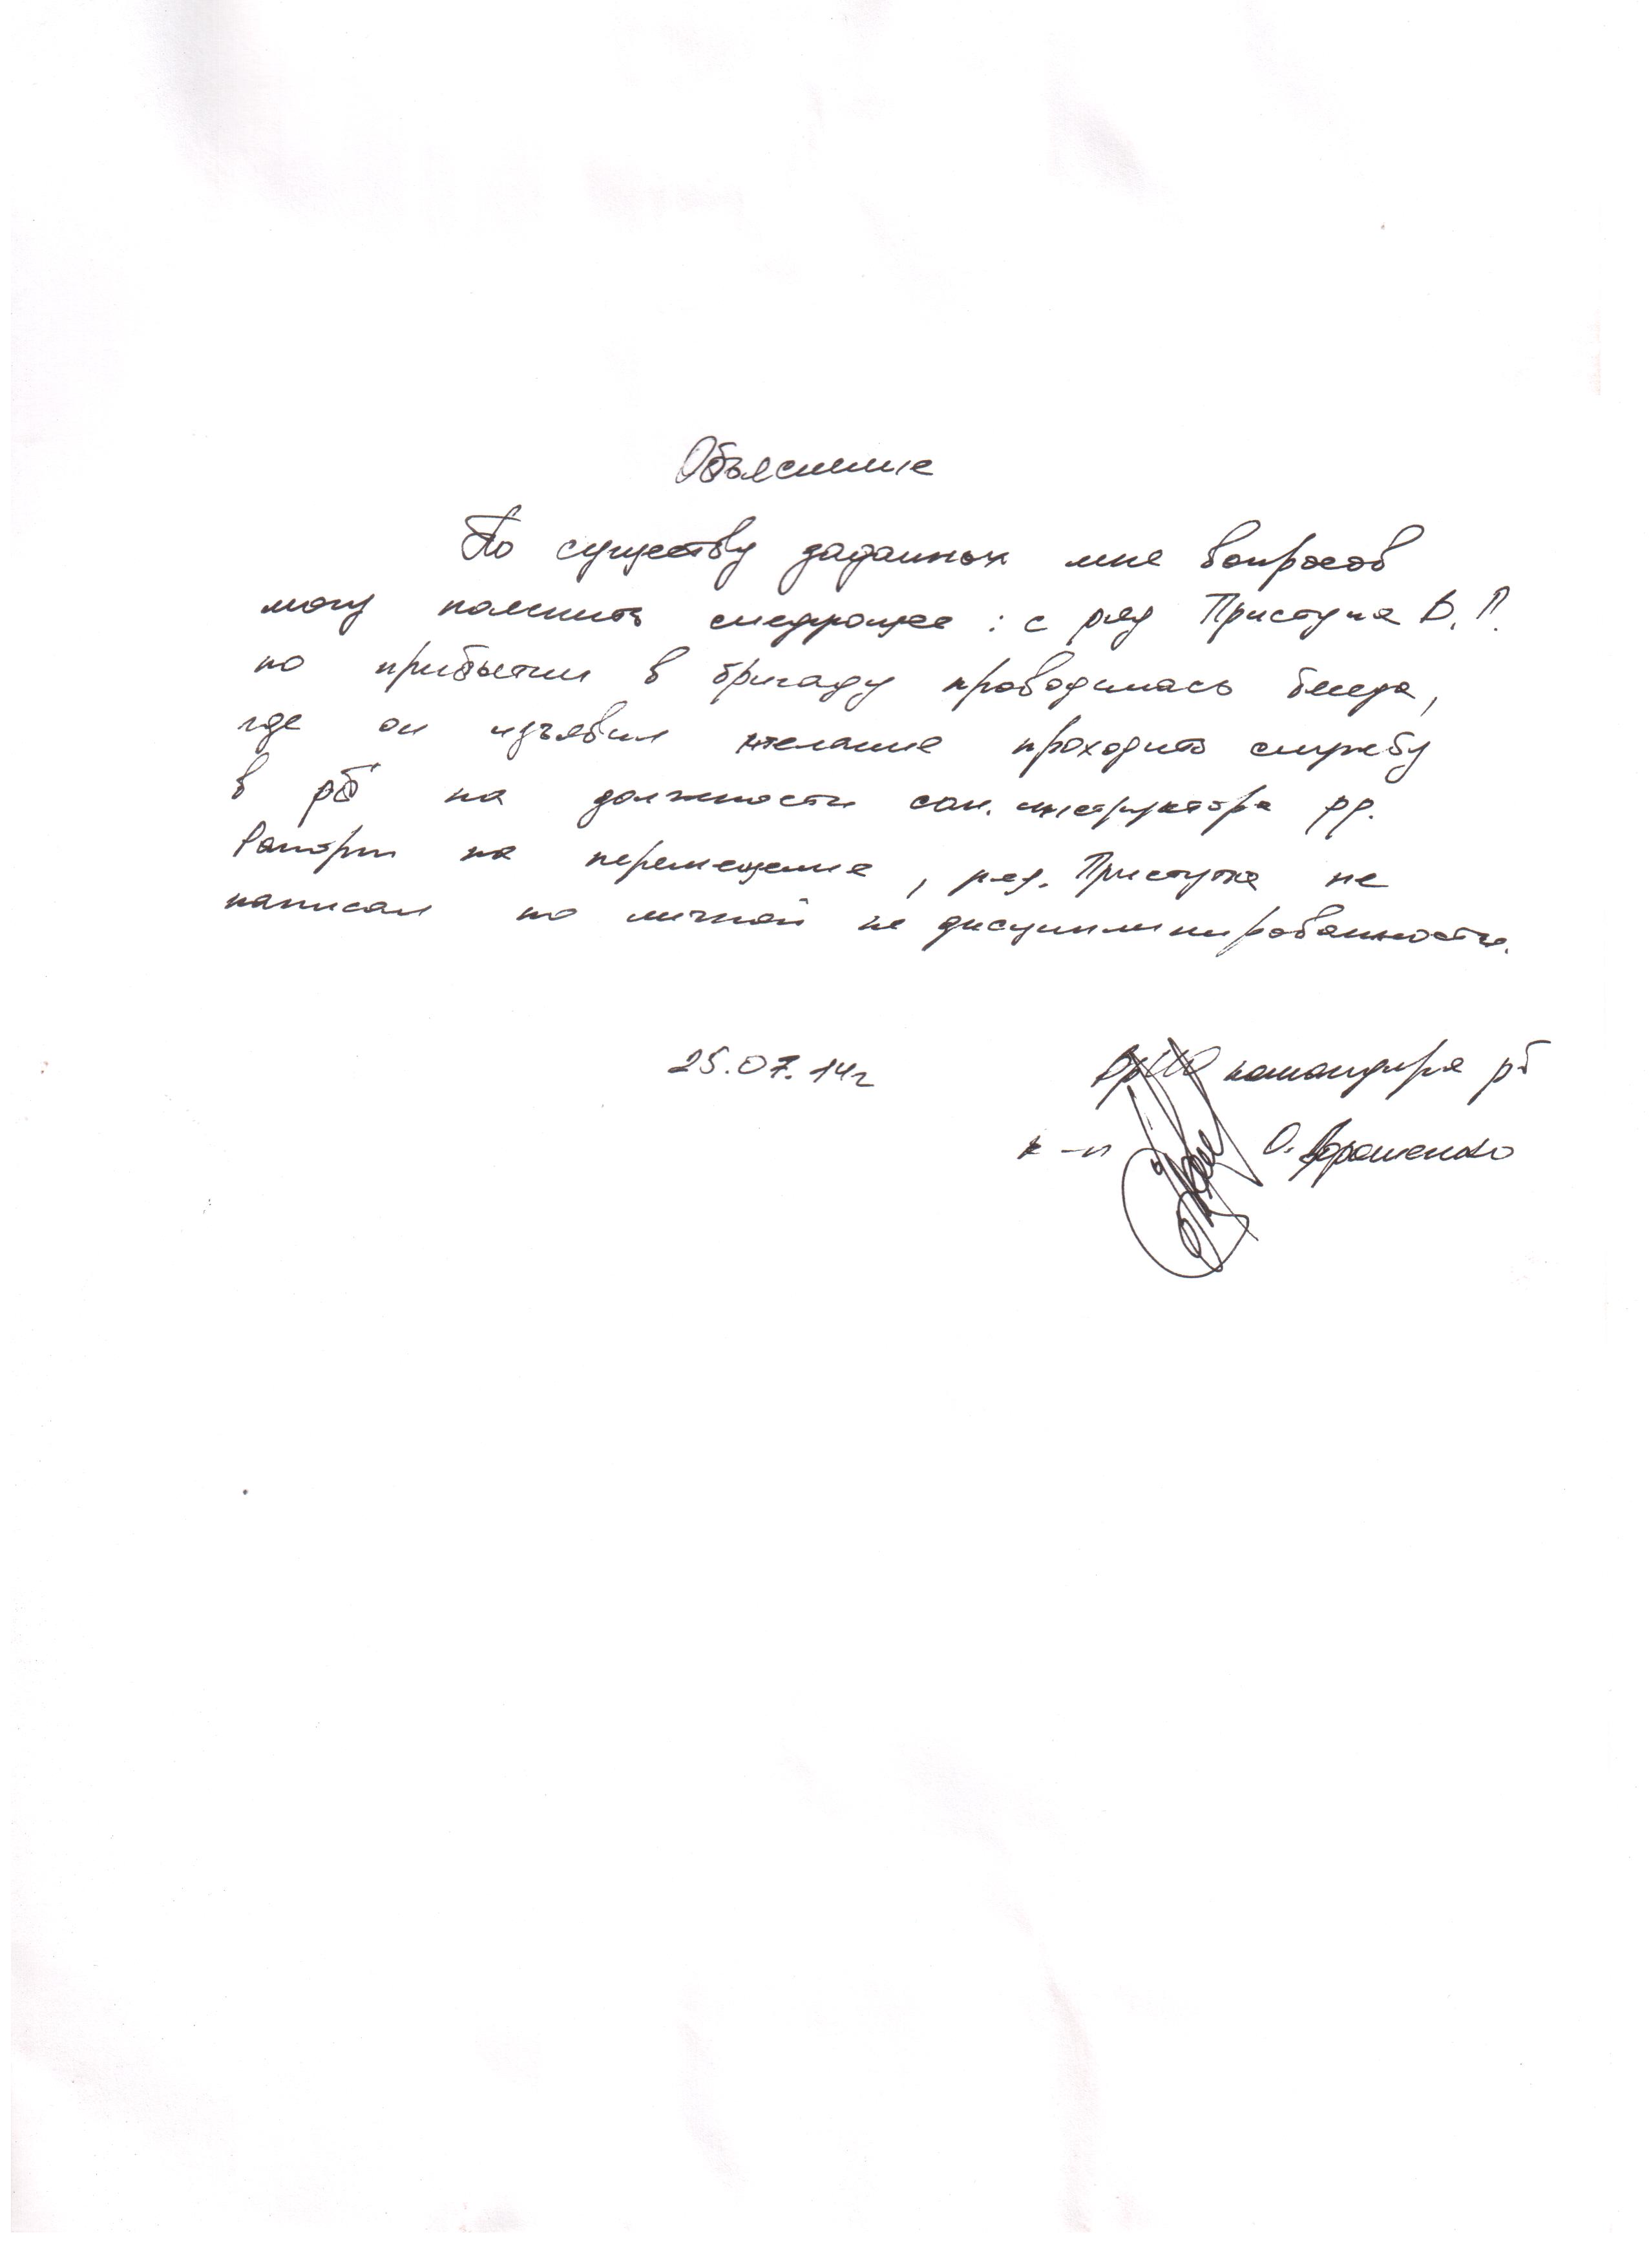 Объяснение
По существу заданных мне вопросов
могу пояснить следующее: с ряд Приступа В.П.
по прибытии в бригаду проводилась беседа,
где он изъявил желание проходить службу
в рб на должности сан. инструктора рр.
Рапорт на перемещение, ряд. Приступа не
написал по личной не дисциплинированности.
25.07.14г
ВрИО командира рб
к-н О. Ворошенко